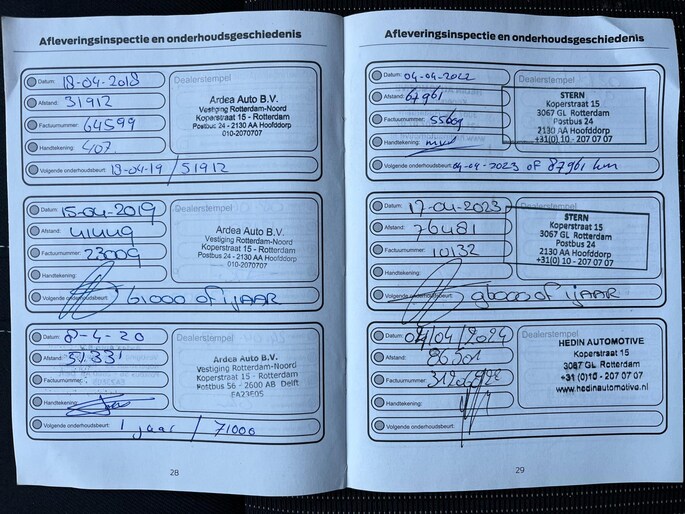 Afleveringsinspectie en onderhoudsgeschiedenis
Datum: 18-04-2018
Afstand: 31912
Factuurnummer: 64599
Handtekening: 407
Volgende onderhoudsbeurt: 18-04-19 / 51912
Dealerstempel
Ardea Auto B.V.
Vestiging Rotterdam-Noord
Koperstraat 15 - Rotterdam
Postbus 24 - 2130 AA Hoofddorp
010-2070707
Datum: 15-04-2019
Afstand: 41449
Factuurnummer: 23009
Handtekening:
Volgende onderhoudsbeurt: 61000 of 1 JAAR
Dealerstempel
Ardea Auto B.V.
Vestiging Rotterdam-Noord
Koperstraat 15 - Rotterdam
Postbus 24 - 2130 AA Hoofddorp
010-2070707
Datum: 8-4-20
Afstand: 51.331
Factuurnummer:
Handtekening:
Volgende onderhoudsbeurt: 1 jaar / 71000
Dealerstempel
Ardea Auto B.V.
Vestiging Rotterdam-Noord
Koperstraat 15 - Rotterdam
Postbus 56 - 2600 AB Delft
EA23E05
28
Afleveringsinspectie en onderhoudsgeschiedenis
Datum: 04-04-2022
Afstand: 67961
Factuurnummer: 55609
Handtekening:
Volgende onderhoudsbeurt: 04-04-2023 of 87961 km
Dealerstempel
STERN
Koperstraat 15
3067 GL Rotterdam
Postbus 24
2130 AA Hoofddorp
+31(0) 10 - 207 07 07
Datum: 17-04-2023
Afstand: 76481
Factuurnummer: 10132
Handtekening:
Volgende onderhoudsbeurt: 96000 of 1 JAAR
Dealerstempel
STERN
Koperstraat 15
3067 GL Rotterdam
Postbus 24
2130 AA Hoofddorp
+31(0) 10 - 207 07 07
Datum: 04/04/2024
Afstand: 86501
Factuurnummer:
Handtekening:
Volgende onderhoudsbeurt:
Dealerstempel
HEDIN AUTOMOTIVE
Koperstraat 15
3067 GL Rotterdam
+31 (0)10 - 207 07 07
www.hedinautomotive.nl
29